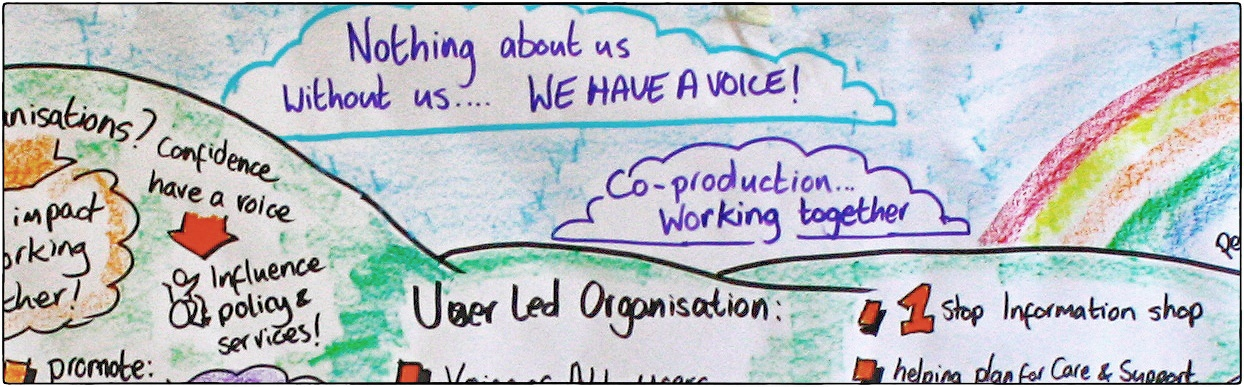 Nothing about us
Without us.... WE HAVE A VOICE!
Co-production...
Working together
anisations?
Confidence
have a voice
impact
orking
ther!
Influence
policy &
services!
promote:
User Led Organisation:
1 Stop Information shop
helping plan for Care & Support